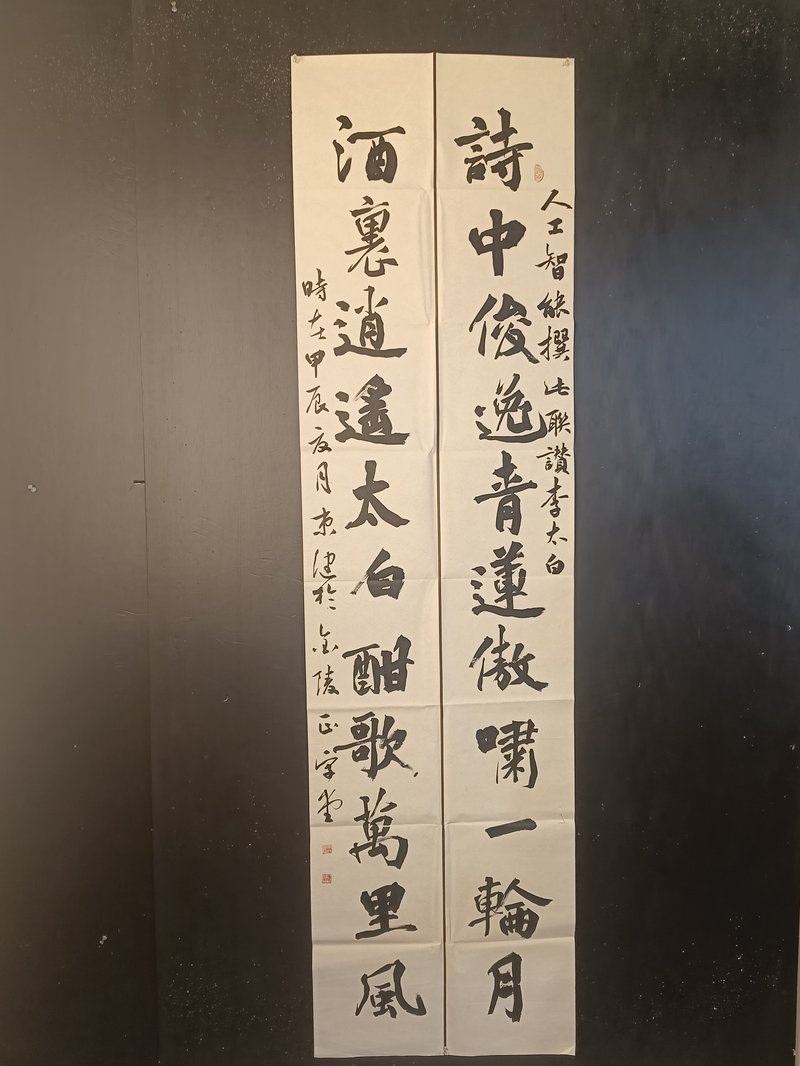 人工智能撰此联讚李太白
詩中俊逸青蓮傲嘯一輪月
酒裏逍遙太白酣歌萬里風
時在甲辰夏月京建於金陵正字堂